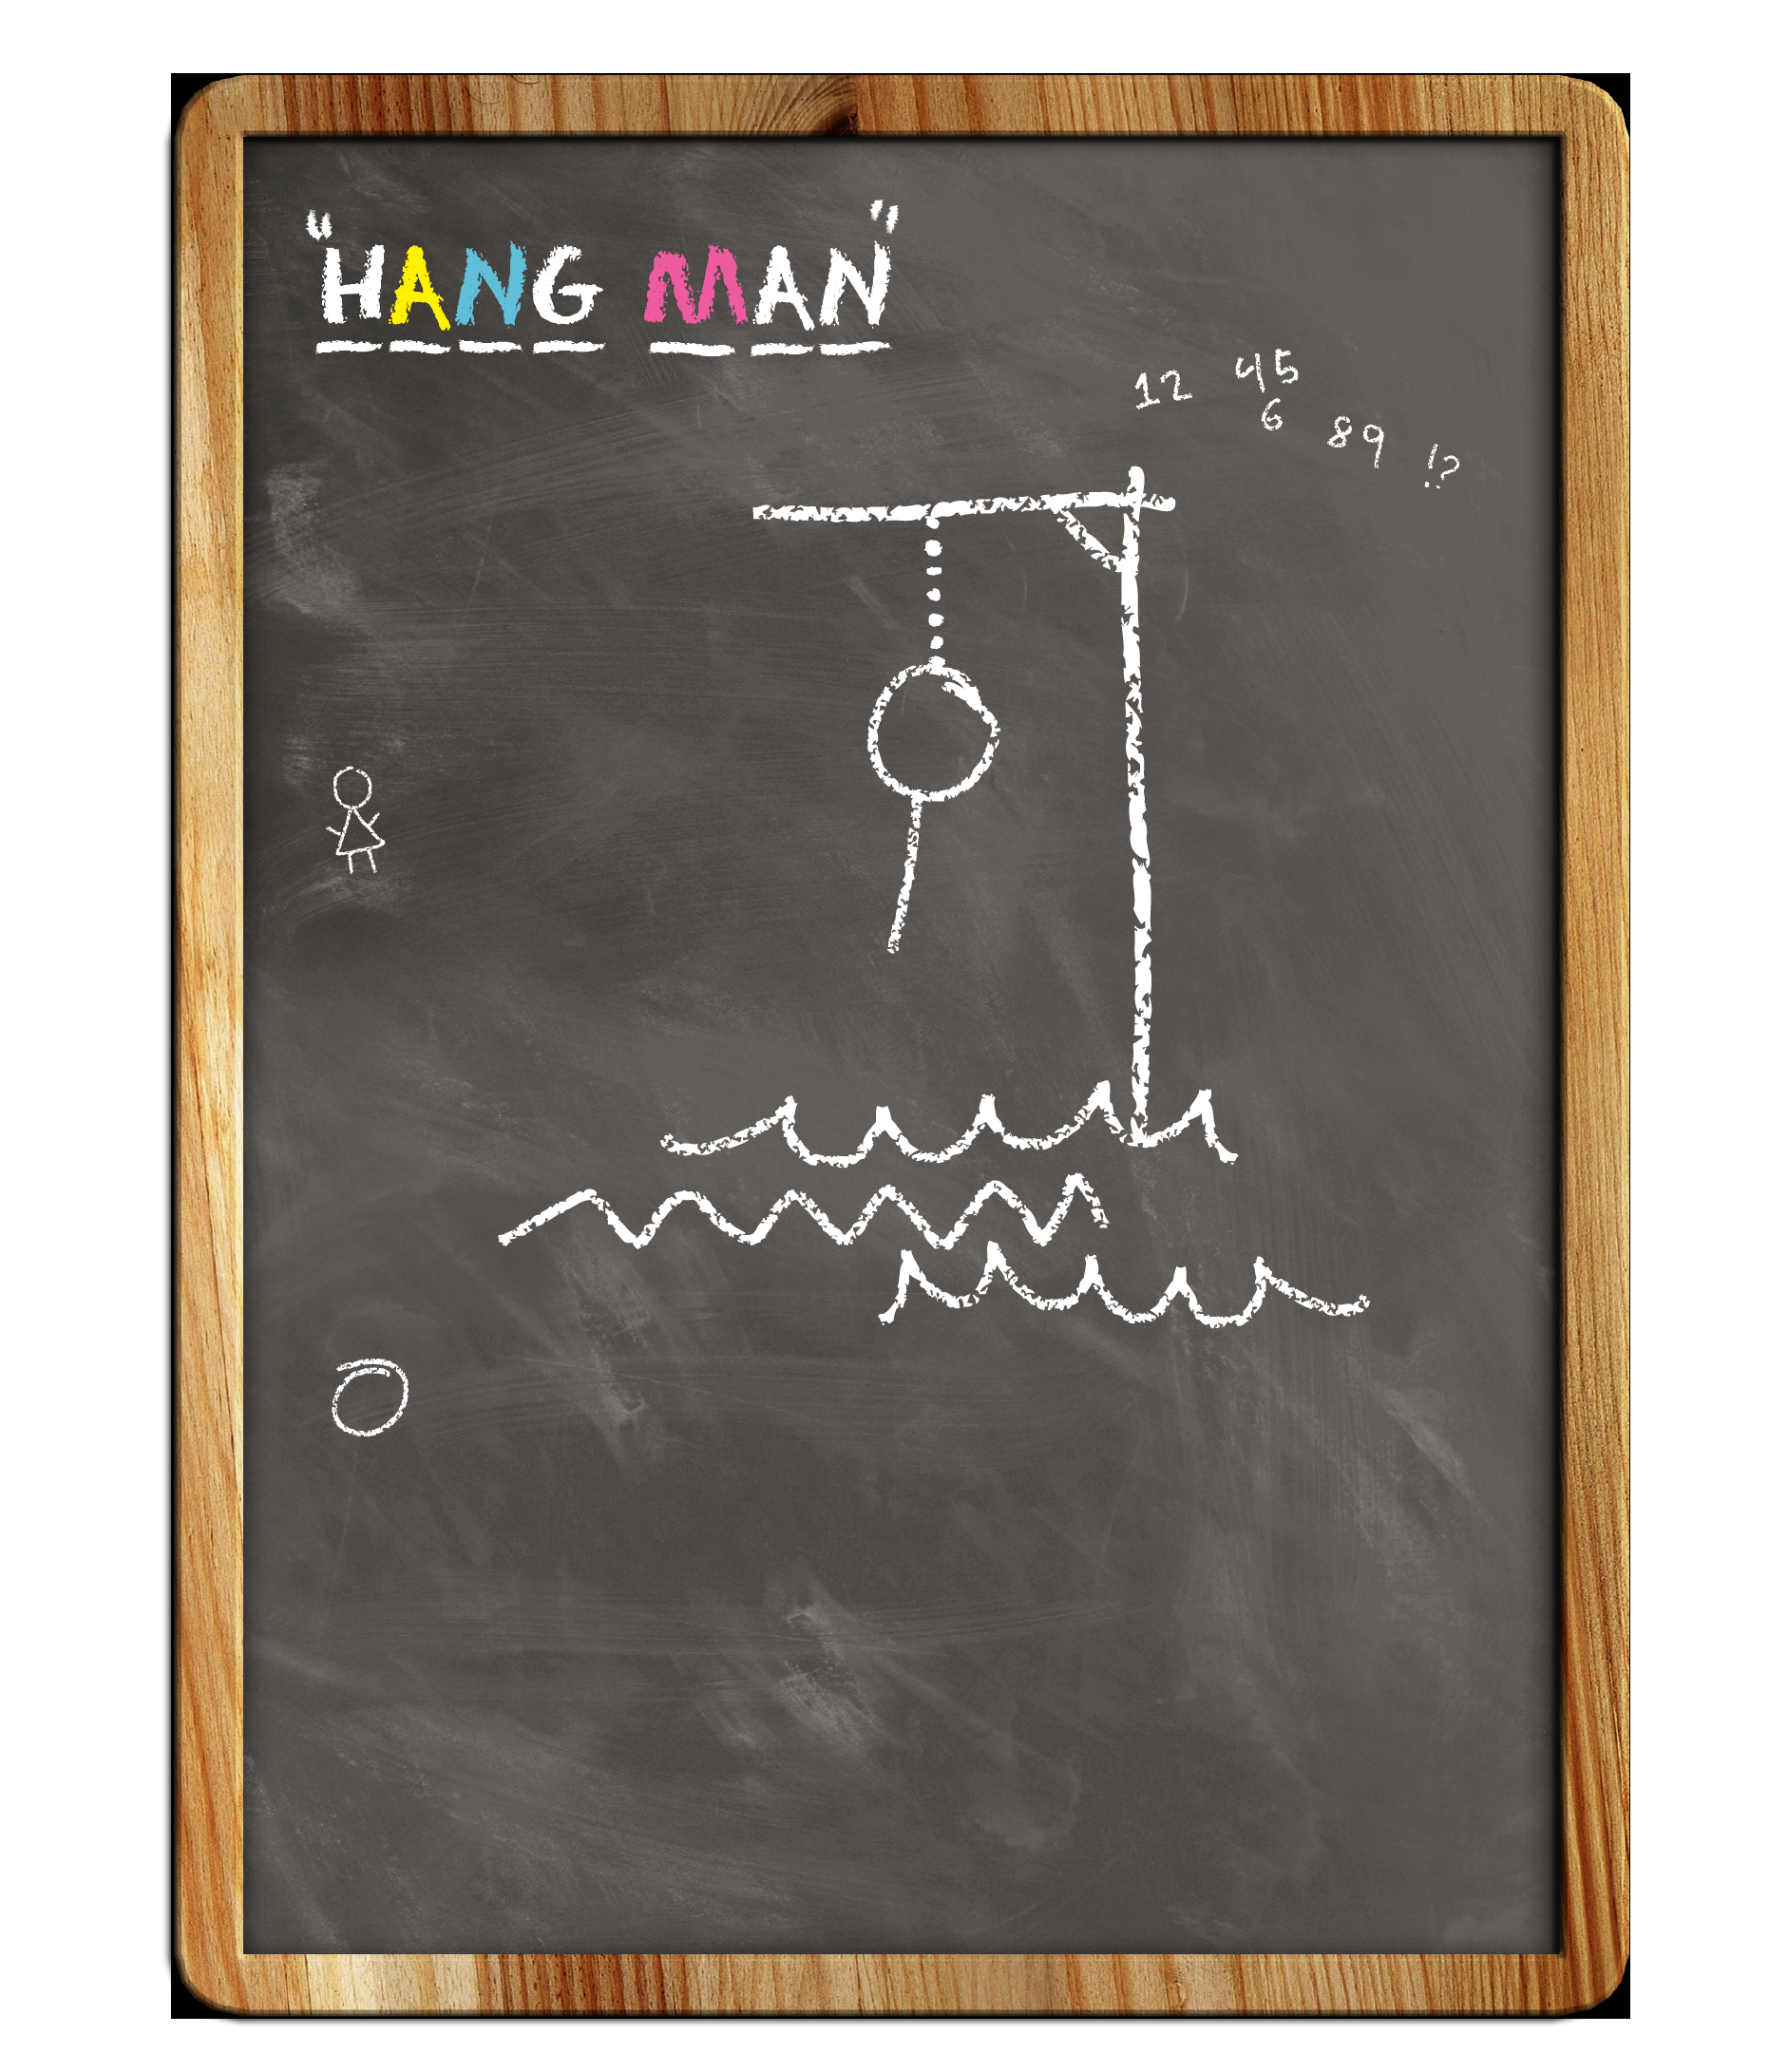 "HANG MAN"
12 45
6 89 !?